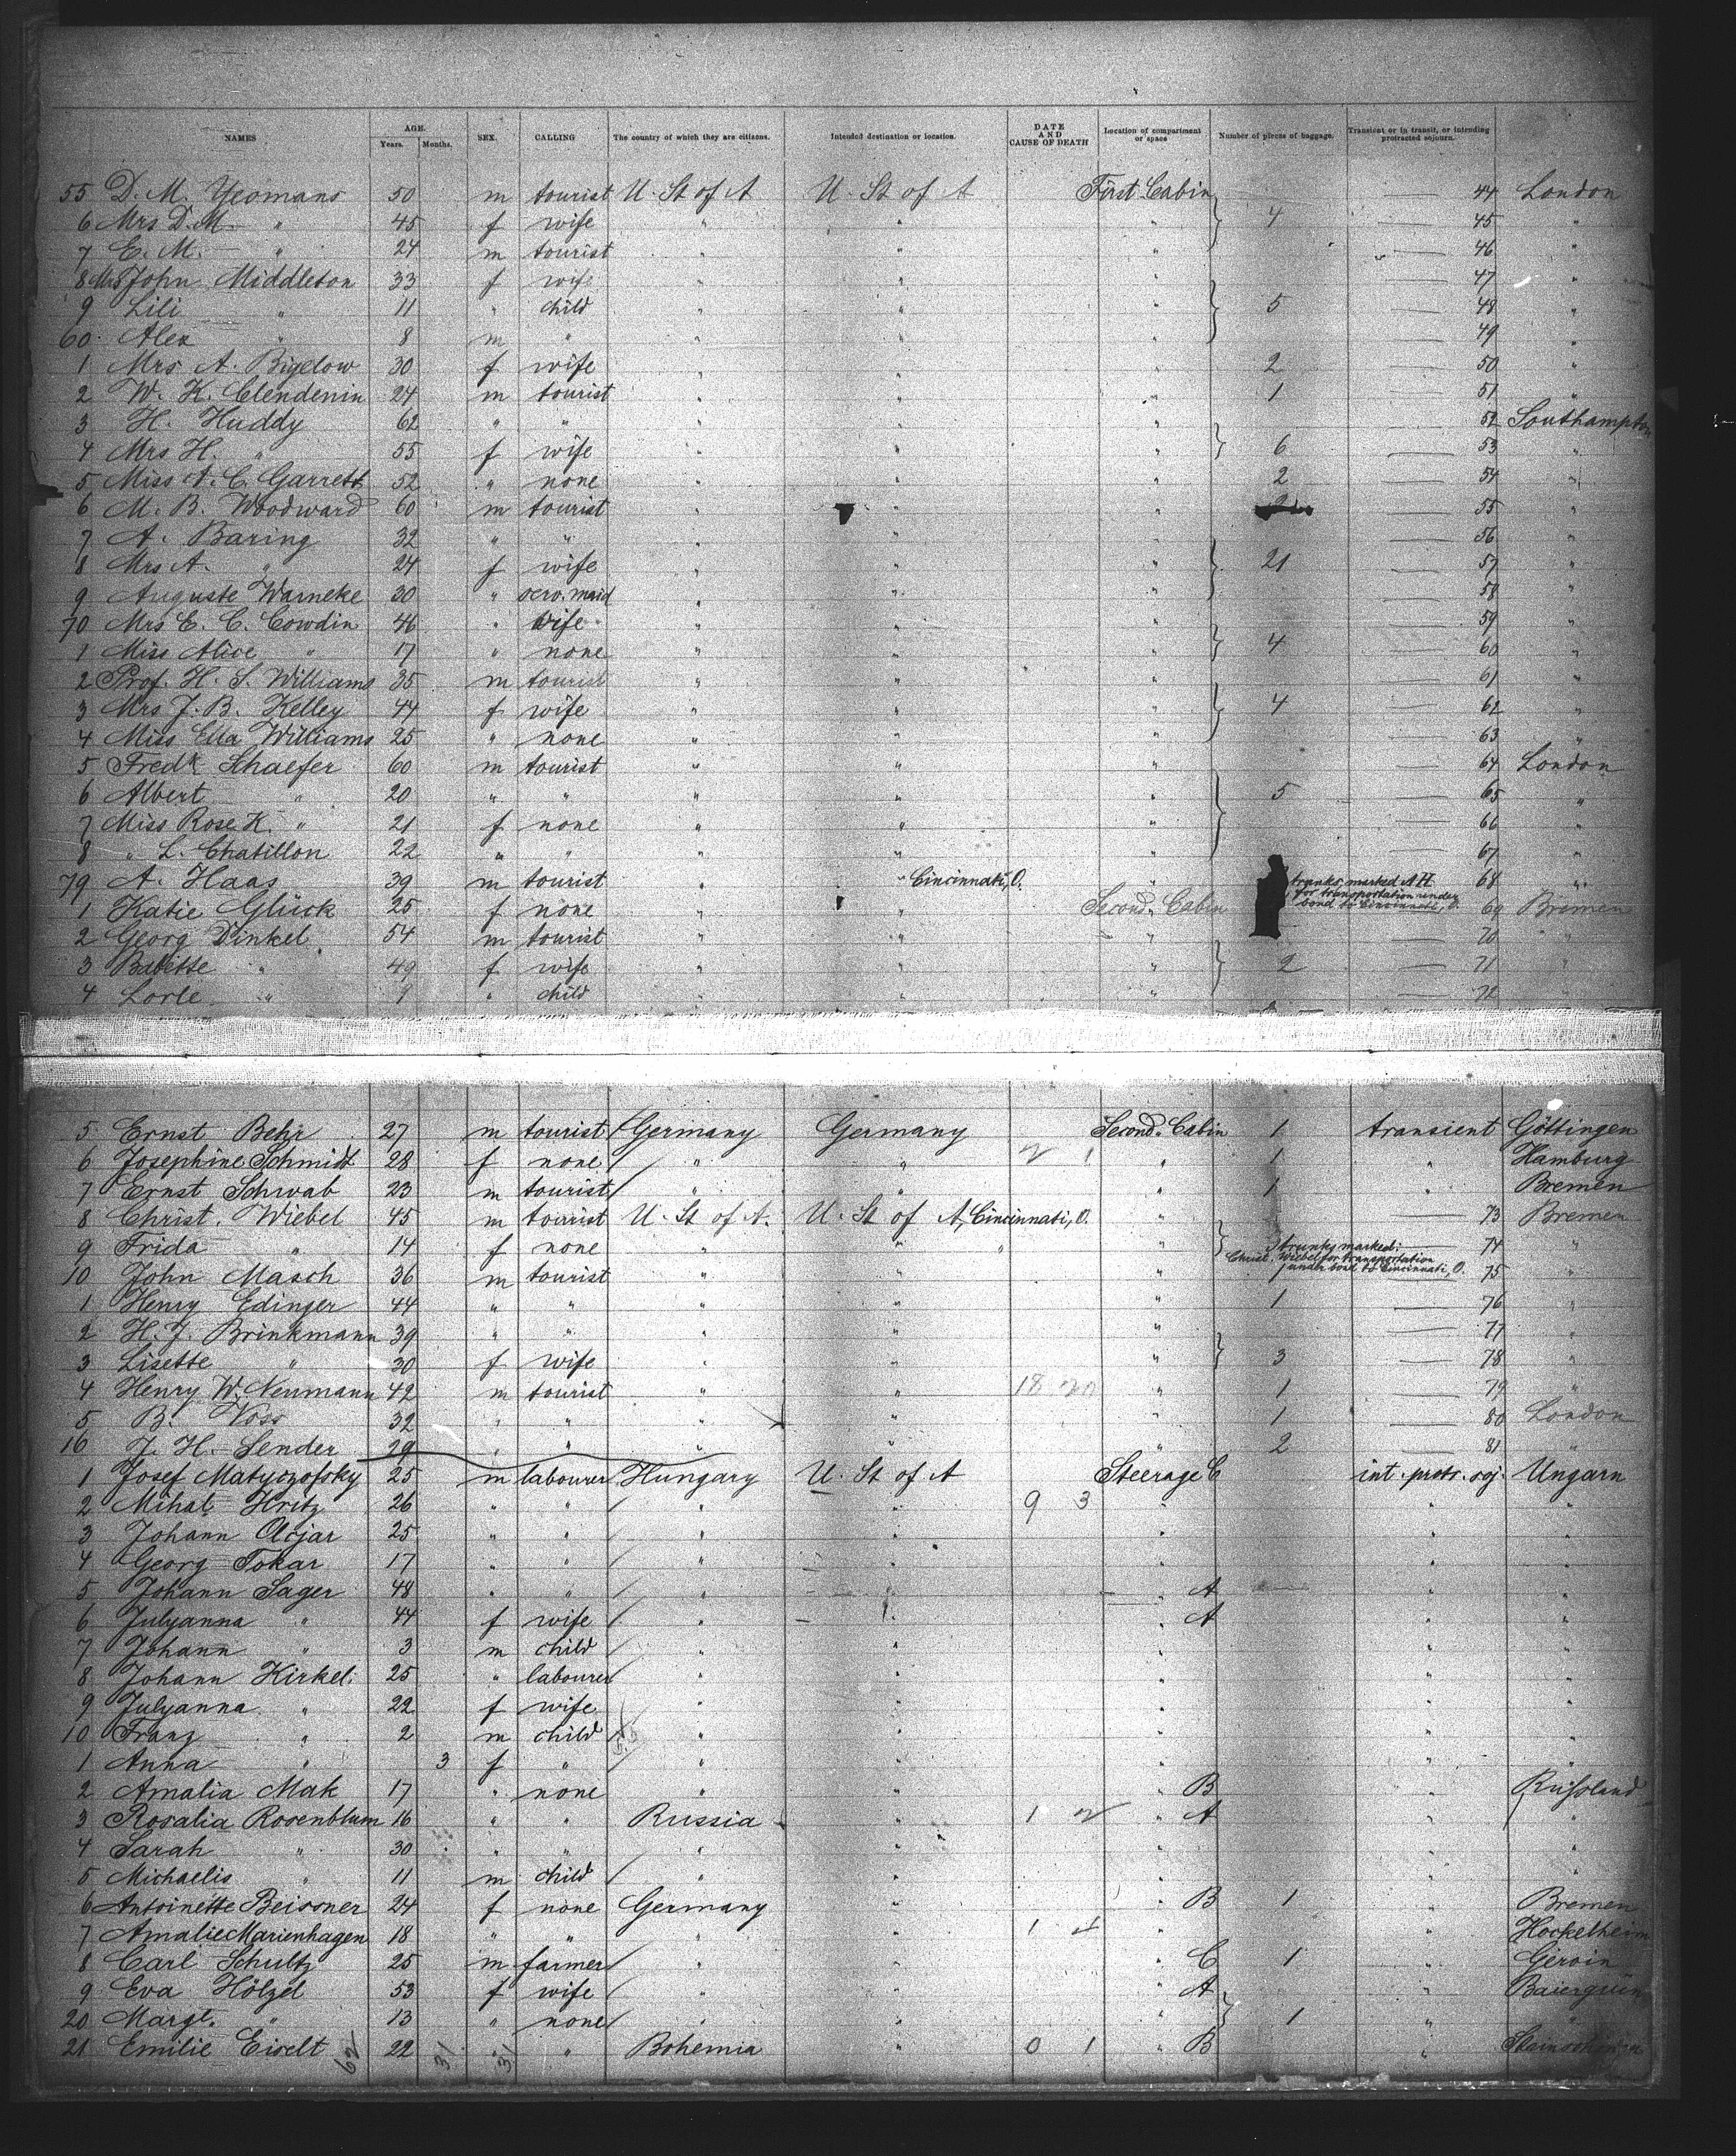 NAMES AGE. Years. Months. SEX. CALLING The country of which they are citizens. Intended destination or location. DATE AND CAUSE OF DEATH Location of compartment or space Number of pieces of baggage. Transient or in transit, or intending protracted sojourn.
55 D. M. Yeomans 50 m tourist U. St of A U. St of A First Cabin — 44 London
6 Mrs D. M. " 45 f wife " " " 4 — 45 "
7 E. M. " 24 m tourist " " " — 46 "
8 Mrs John Middleton 33 f wife " " " — 47 "
9 Lili " 11 " child " " " 5 — 48 "
60 Alex " 8 m " " " " — 49 "
1 Mrs A. Bigelow 30 f wife " " " 2 — 50 "
2 W. K. Clendenin 24 m tourist " " " 1 — 51 "
3 H. Huddy 62 " " " " " — 52 Southampton
4 Mrs H. " 55 f wife " " " 6 — 53 "
5 Miss A. C. Garrett 52 " none " " " 2 — 54 "
6 M. B. Woodward 60 m tourist " " — 55 "
7 A. Baring 32 " " " " " — 56 "
8 Mrs A. " 24 f wife " " " 21 — 57 "
9 Auguste Warneke 30 " serv. maid " " " — 58 "
70 Mrs E. C. Cowdin 46 " wife " " " — 59 "
1 Miss Alice " 17 " none " " " 4 — 60 "
2 Prof. H. S. Williams 35 m tourist " " " — 61 "
3 Mrs J. B. Kelley 44 f wife " " " 4 — 62 "
4 Miss Ella Williams 25 " none " " " — 63 "
5 Fredk Schaefer 60 m tourist " " " — 64 London
6 Albert " 20 " " " " " 5 — 65 "
7 Miss Rose K. " 21 f none " " " — 66 "
8 " L. Chatillon 22 " " " " " — 67 "
79 A. Haas 39 m tourist " " Cincinnati, O. " trunks marked A H for transportation under bond to Cincinnati, O. 68 "
1 Katie Glück 25 f none " " Second Cabin 69 Bremen
2 Georg Dinkel 54 m tourist " " " — 70 "
3 Babette " 49 f wife " " " 2 — 71 "
4 Lorle " 9 " child " " " — 72 "
5 Ernst Behr 27 m tourist Germany Germany Second Cabin 1 transient Göttingen
6 Josephine Schmidt 28 f none " " 2 1 " 1 " Hamburg
7 Ernst Schwab 23 m tourist " " " 1 " Bremen
8 Christ. Wiebel 45 m tourist U. St of A. U. St of A, Cincinnati, O. " — 73 Bremen
9 Frida " 14 f none " " " " 3 trunks marked: Christ. Wiebel for transportation under bond to Cincinnati, O. — 74 "
10 John Masch 36 m tourist " " " 75 "
1 Henry Edinger 44 " " " " " 1 — 76 "
2 H. J. Brinkmann 39 " " " " " — 77 "
3 Lisette " 30 f wife " " " 3 — 78 "
4 Henry W. Neumann 42 m tourist " " 18 20 " 1 — 79 "
5 B. Voss 32 " " " " " 1 — 80 London
16 J. H. Sender 29 " " " " " 2 — 81 "
1 Josef Matyczofsky 25 m labourer Hungary U. St of A Steerage C int. protr. soj. Ungarn
2 Mihal Hritz 26 " " " " 9 3 " " "
3 Johann 25 " " " " " " "
4 Georg Tokar 17 " " " " " " "
5 Johann Sager 48 " " " " " A " "
6 Julyanna " 44 f wife " " " A " "
7 Johann " 3 m child " " " " "
8 Johann Kirkel 25 " labourer " " " " "
9 Julyanna " 22 f wife " " " " "
10 Franz " 2 m child " " " " "
1 Anna " 3 f " " " " " "
2 Amalia Mak 17 " none " " " B " Russland
3 Rosalia Rosenblum 16 " " Russia " 1 2 " A " "
4 Sarah " 30 " " " " " " "
5 Michaelis " 11 m child " " " " "
6 Antoinette Beissner 24 f none Germany " " B 1 " Bremen
7 Amalie Marienhagen 18 " " " " 1 " " Höckelheim
8 Carl Schultz 25 m farmer " " " C 1 " Gervin
9 Eva Hölzel 53 f wife " " " A "
20 Margt. " 13 " none " " " 1 " "
21 Emilie Eiselt 22 " " Bohemia " 0 1 " B "
62 31 31